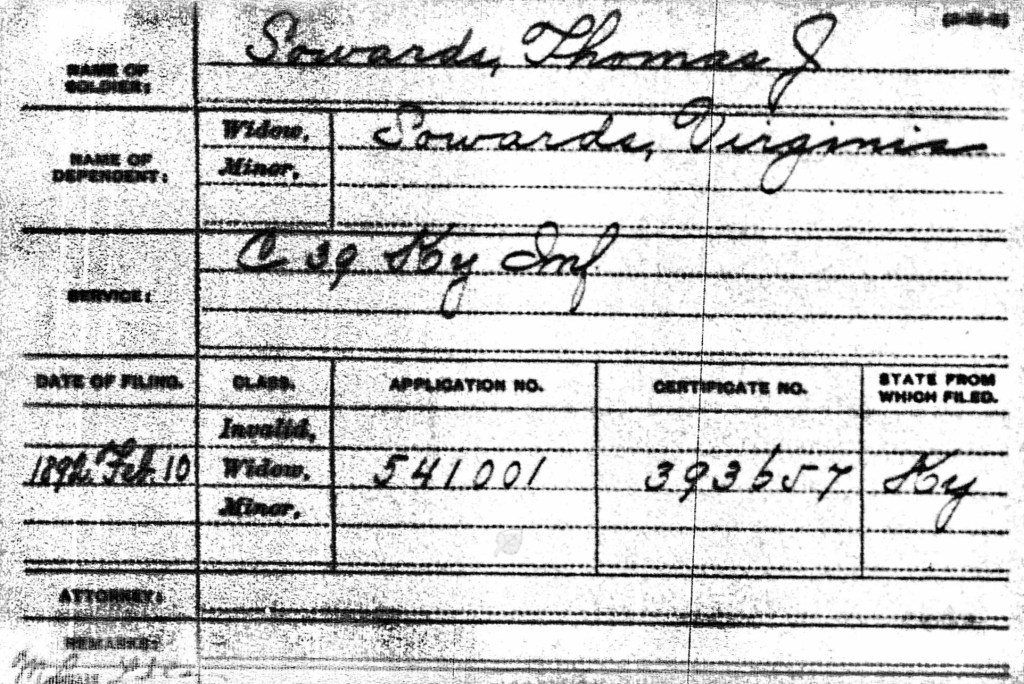 NAME OF SOLDIER: Sowards, Thomas J
NAME OF DEPENDENT: Widow, Sowards, Virginia
Minor,
SERVICE: C 39 Ky Inf
DATE OF FILING. CLASS. APPLICATION NO. CERTIFICATE NO. STATE FROM WHICH FILED.
Invalid,
1892 Feb. 10 Widow, 541001 393657 Ky
Minor,
ATTORNEY:
REMARKS: